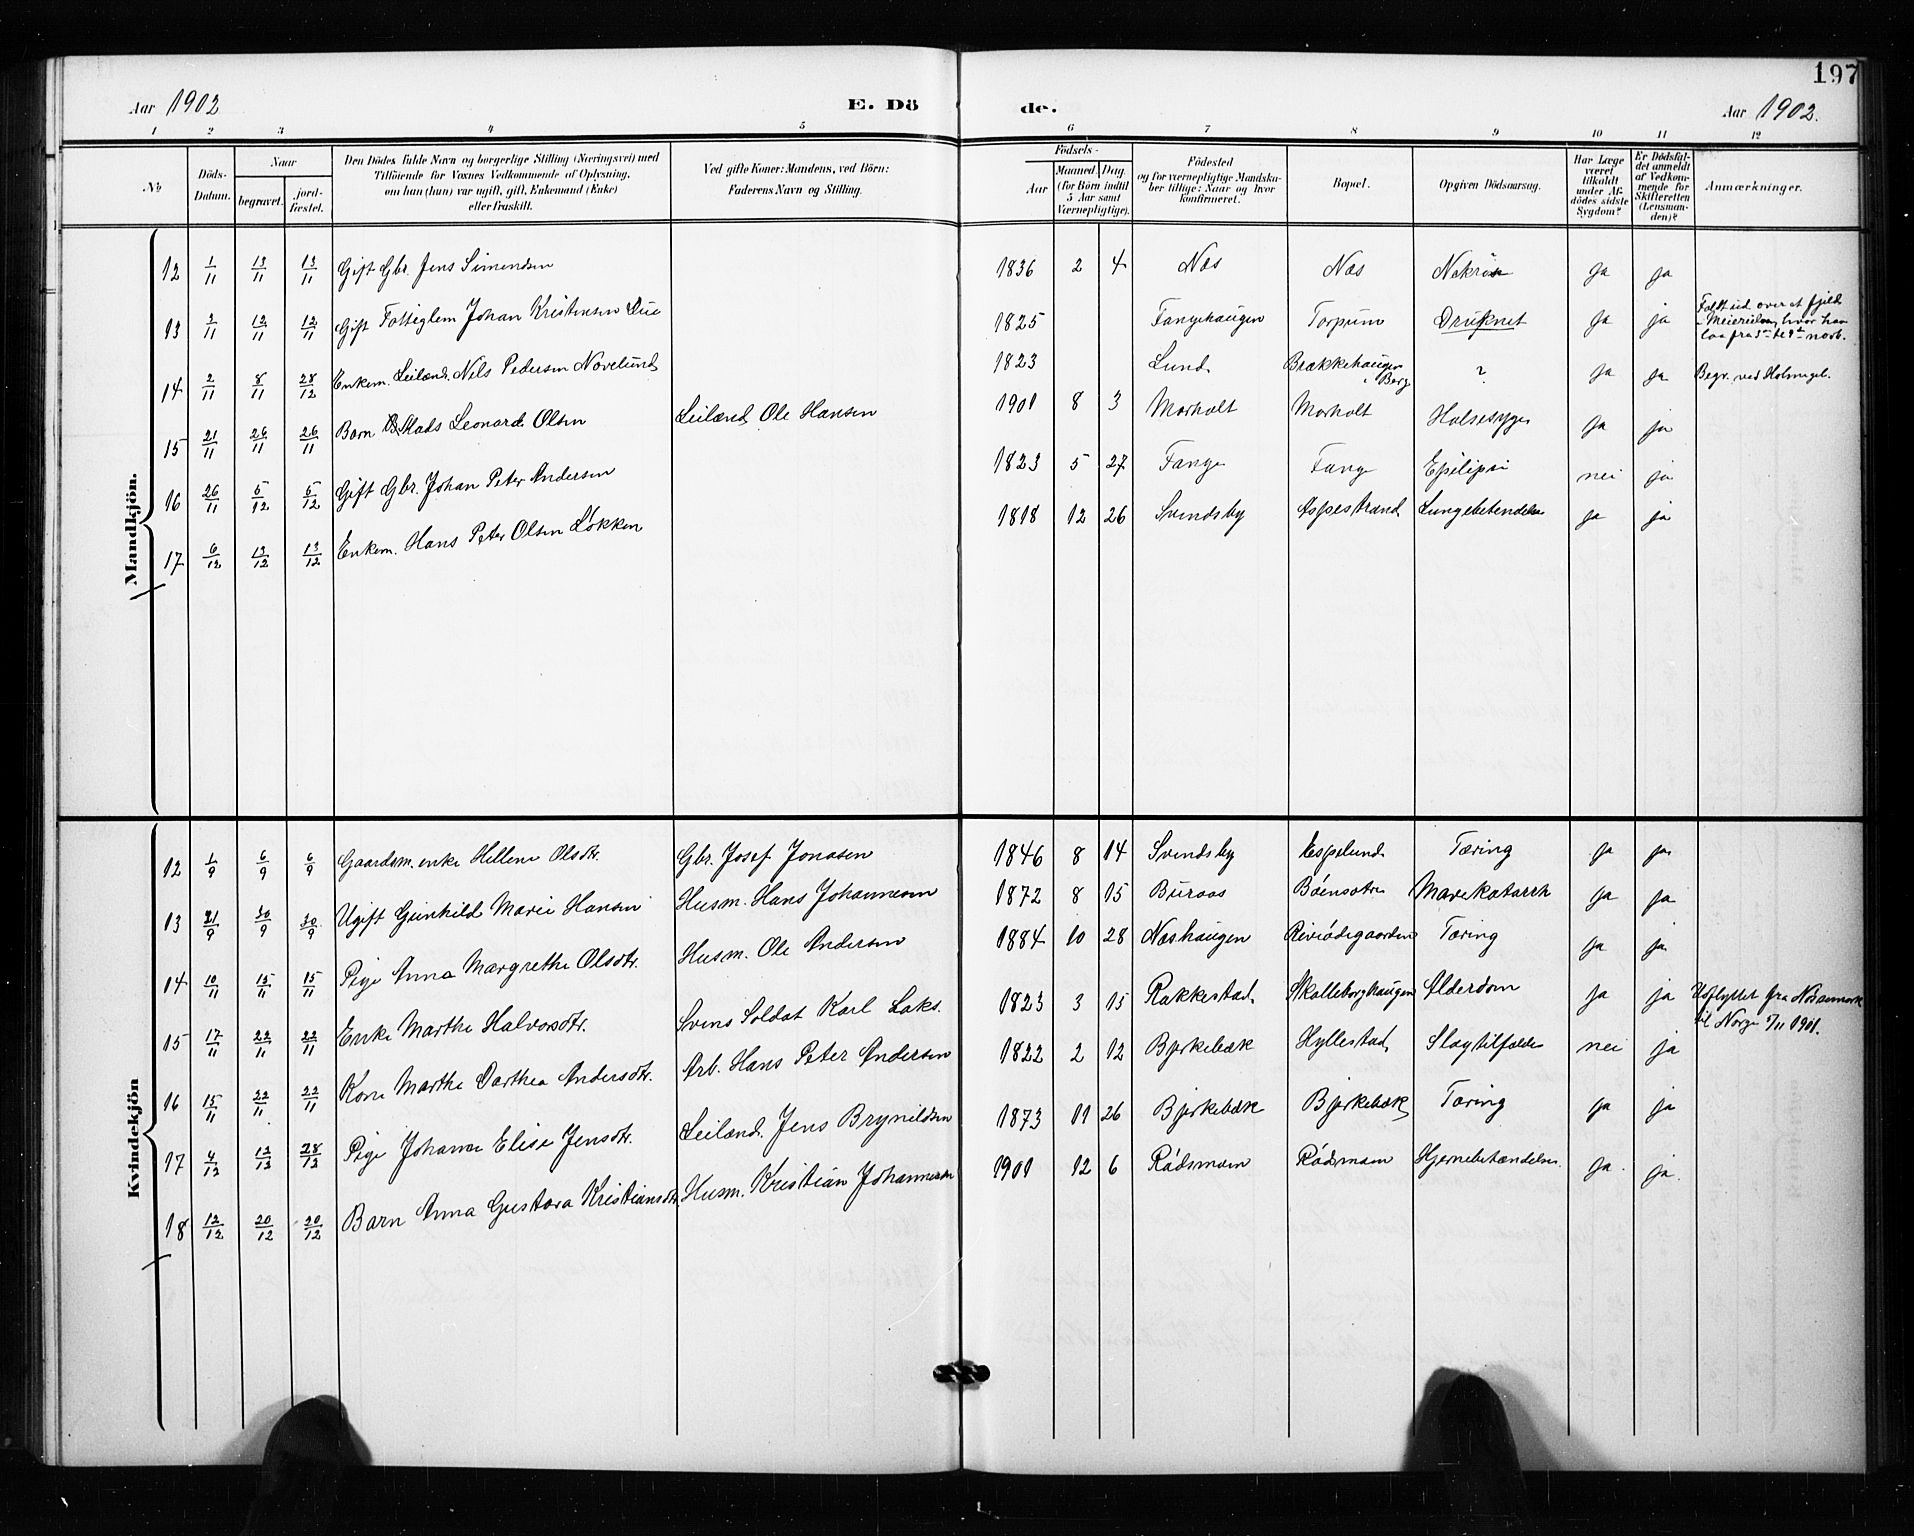 197
Aar 1902 E. Dö de. Aar 1902.
1 2 3 4 5 6 7 8 9 10 11 12
No
Döds-Datum.
Naar
begravet.
jord-fæstet.
Den Dödes fulde Navn og borgerlige Stilling (Næringsvei) med
Tilföiende for Voxnes Vedkommende af Oplysning,
om han (hun) var ugift, gift, Enkemand (Enke)
eller fraskilt.
Ved gifte Koner: Mandens, ved Börn:
Faderens Navn og Stilling.
Födsels-
Aar
Maaned. Dag.
(for Börn indtil
5 Aar samt
Værnepligtige).
Födested
og for værnepligtige Mandska-
ber tillige: Naar og hvor
konfirmeret.
Bopæl.
Opgiven Dödsaarsag.
Har Læge
været
tilkaldt
under Af-
dödes sidste
Sygdom?
Er Dödsfal-
det anmeldt
af Vedkom-
mende for
Skifteretten
(Lensman-
den)?
Anmærkninger.
Mandkjön.
12 1/11 13/11 13/11 Gift Gbr. Jens Simensen 1836 2 4 Næs Næs ja ja
13 3/11 12/11 12/11 Gift Fattiglem Johan Kristensen Lie 1825 Fangehaugen Torpum Druknet ja ja Faldt ud over et fjeld
hvor han
laa fra
14 2/11 8/11 28/12 Enkem. Leilænd. Nels Pedersen Novelund 1823 Lund Brækkehaugen
i Berg ? ja ja Begr. ved Holmegil.
15 21/11 26/11 26/11 Barn Mads Leonard Olsen Leilænd Ole Hansen 1901 8 3 Morholt Morholt Halsesyge ja ja
16 26/11 5/12 5/12 Gift Gbr. Johan Peter Andersen 1823 5 27 Fange Fange Epilepsi nei ja
17 6/12 13/12 13/12 Enkem. Hans Peter Olsen Løkken 1818 12 26 Svendsby Aspestrand Lungebetendelse ja ja
Kvindekjön
12 1/9 6/9 6/9 Gaardm. enke Hellene Olsdtr. Gbr. Josef Jonasen 1846 8 14 Svendsby Espelund Tæring ja ja
13 21/9 30/9 30/9 Ugift Gunhild Marie Hansen Husm. Hans Johannesen 1872 8 15 Buraas Bøensætre Mavekatarrh ja ja
14 10/11 15/11 15/11 Pige Anna Margrethe Olsdtr. Husm. Ole Andersen 1884 10 28 Næshaugen Reviødegaarden Tæring ja ja
15 17/11 22/11 22/11 Enke Marthe Halvorsdtr. Svens Soldat Karl Laks. 1823 3 15 Rakkestad Skolleborghaugen Alderdom ja ja Udflyttet fra
til Norge 5/11 1901.
16 15/11 22/11 22/11 Kone Marthe Dorthea Andersdtr. Arb. Hans Peter Andersen 1822 2 12 Bjørkebæk Hyllestad Slagtilfælde nei ja
17 4/12 12/12 28/12 Pige Johanne Elise Jensdtr. Leilænd. Jens Brynildsen 1873 11 26 Bjørkebæk Bjørkebæk Tæring ja ja
18 12/12 20/12 20/12 Barn Anna Gustava Kristiansdtr. Husm. Kristian Johannesen 1901 12 6 Rødsmoen Rødsmoen Hjernebetændelse. ja. ja.